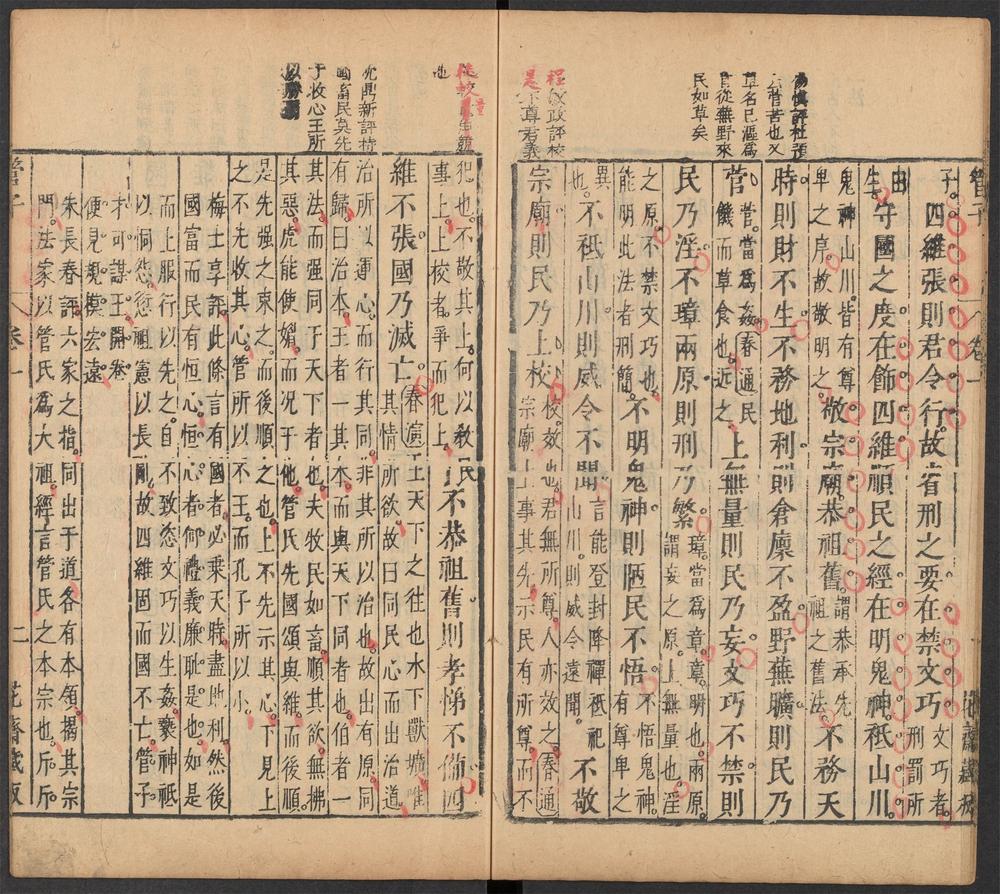 管子 卷一 花齋藏板
楊慎評杜預
云菅苦也又
草名已漚爲
菅從無野來
民如草矣
程敏政評校
是下尊君義
子四維張則君令行故省刑之要在禁文巧 文巧者刑罰所
由生 守國之度在飾四維順民之經在明鬼神祇山川
鬼神山川皆有尊卑之序故敬明之 敬宗廟恭祖舊 謂恭承先祖之舊法 不務天
時則財不生不務地利則倉廩不盈野蕪曠則民乃
菅 菅當爲姦春通民饑而草食也近之 上無量則民乃妄文巧不禁則
民乃淫不璋兩原則刑乃繁 璋當爲章章明也兩原謂妄之原上無量也淫
之原不禁文巧也能明此法者刑簡 不明鬼神則陋民不悟 不悟鬼神有尊卑之
異也 不祗山川則威令不聞 言能登封降禪祇祀山川則威令遠聞 不敬
宗廟則民乃上校 校效也君無所尊人亦效之春通宗廟上事其先示民有所尊而不
也
沈鼎新評特
國畜民莫先
于收心王所
以勝霸
犯也不敬其上何以敎民事上上校者爭而犯上 不恭祖舊則孝悌不備四
維不張國乃滅亡 春演王天下之往也水下獸壙唯其情所欲故曰同民心而出治道
治所以運心而行其同非其所以治也故出有原同
有歸曰治本王者一其本而與天下同者也伯者一
其法而强同于天下者也夫牧民如畜順其欲無拂
其惡虎能使媚而况于他管氏先國頌與維而後順
是先强之束之而後順之也上不先示其心下見上
之不先收其心管所以不王而孔子所以小
梅士享評此條言有國者必乗天時盡地利然後
國富而民有恒心恒心者何禮義廉耻是也如是
而上服行以先之自不致恣文巧以生姦褻神祇
以恫怨愆祖憲以長亂故四維固而國不亡管子
才可謀王開卷
便見規模宏遠
朱長春評六家之指同出于道各有本領揭其宗
門法家以管氏爲大祖經言管氏之本宗也斥斥
管子 卷一 二 花齋藏板